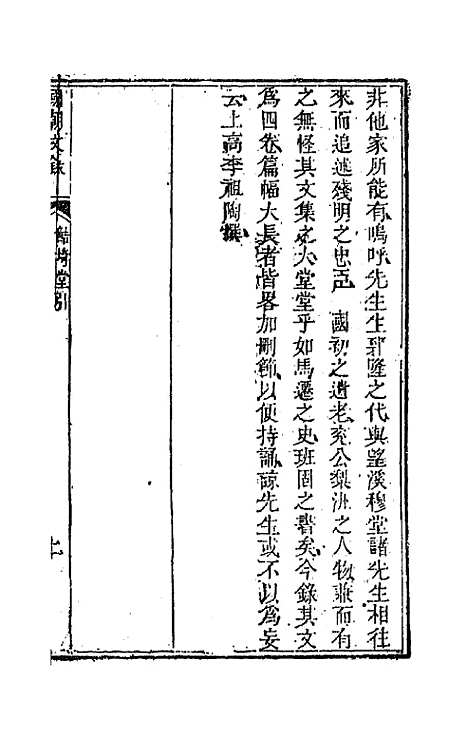 非他家所能有嗚呼先生生郅隆之代與望溪穆堂諸先生相往
來而追述殘明之忠臣　國初之遺老兗公梨洲之人物兼而有
之無怪其文集之大堂堂乎如馬遷之史班固之書矣今錄其文
為四卷篇幅大長者皆畧加刪節以便持誦諒先生或不以為妄
云上高李祖陶撰
國朝文錄
鮚埼堂引
七